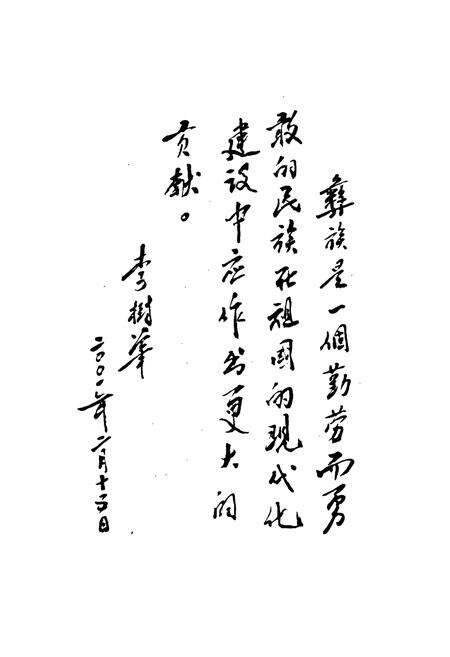 彝族是一個勤劳而勇
敢的民族在祖国的现代化
建设中应作出更大的
贡献。
李樹華
二〇〇一年二月十五日